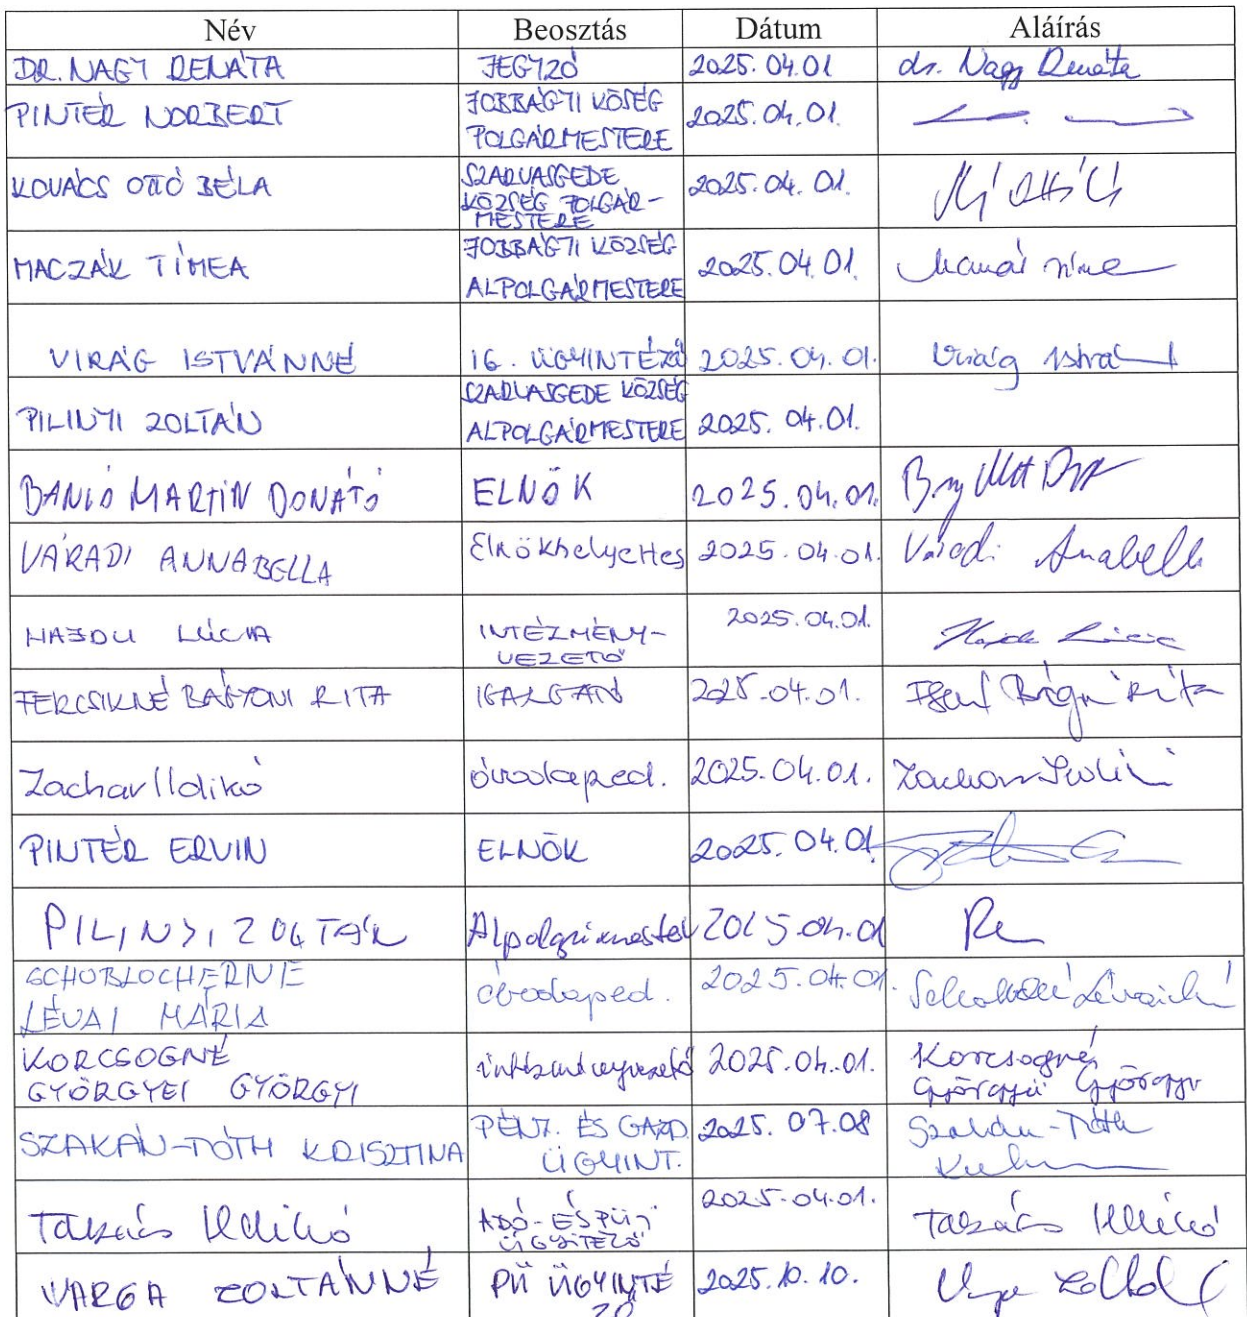 Név Beosztás Dátum Aláírás
DR. NAGY RENÁTA JEGYZŐ 2025.04.01 dr. Nagy Renáta
PINTÉR NORBERT JOBBÁGYI KÖSÉG POLGÁRMESTERE 2025.04.01.
KOVÁCS OTTÓ BÉLA SZARVASGEDE KÖZSÉG POLGÁR-MESTERE 2025.04.01.
MACZÁK TÍMEA JOBBÁGYI KÖZSÉG ALPOLGÁRMESTERE 2025.04.01.
VIRÁG ISTVÁNNÉ IG. ÜGYINTÉZŐ 2025.04.01. Virág István
PILINYI ZOLTÁN SZARVASGEDE KÖZSÉG ALPOLGÁRMESTERE 2025.04.01.
MARTIN DONÁTÓ ELNÖK 2025.04.01.
VÁRADI ANNABELLA Elnökhelyettes 2025.04.01. Váradi Anabella
HAJDU LÚCIA INTÉZMÉNY-VEZETŐ 2025.04.01. Hajdu Lúcia
FERCSIKNÉ BÁGYONI RITA IGAZGATÓ 2025.04.01. Rita
Zachar Ildikó óvodaped. 2025.04.01. Zachar Ildikó
PINTÉR ERVIN ELNÖK 2025.04.01.
PILINYI ZOLTÁN Alpolgármester 2025.04.01
SCHOBLOCHERNÉ LÉVAI MÁRIA óvodaped. 2025.04.01.
KORCSOGNÉ GYÖRGYEI GYÖRGYI intézményvezető 2025.04.01. Korcsogné Györgyei Györgyi
SZAKÁN-TÓTH KRISZTINA PÉNZ. ÉS GAZD. ÜGYINT. 2025.07.08 Szakán-Tóth
Takács Ildikó ADÓ- ÉS PÜ-I 2025.04.01. Takács Ildikó
VARGA ZOLTÁNNÉ PÜ ÜGYINTÉZŐ 2025.10.10.